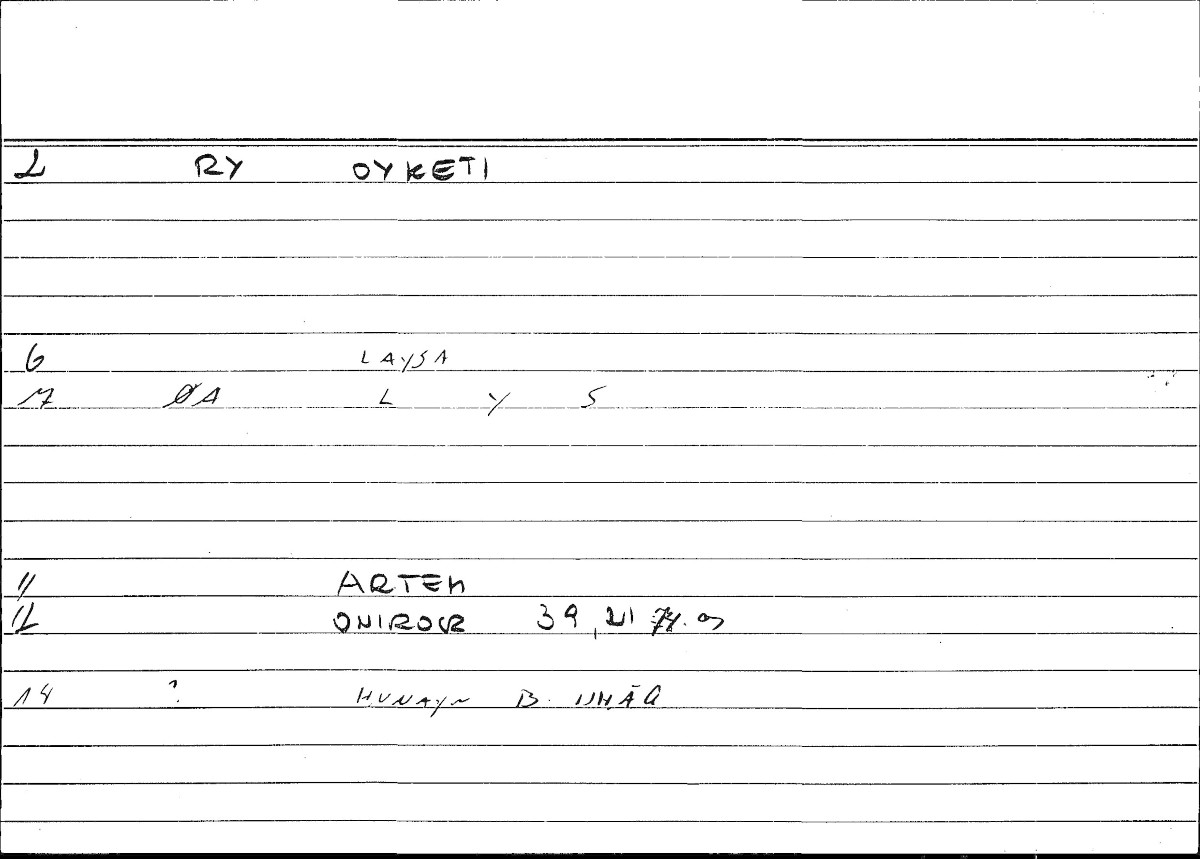 2 RY OYKETI
6 LAYSA
17 ØA L Y S
11 ARTEM
12 ONIROCR 39, 21
14 ? HUNAYN B. ISHĀQ